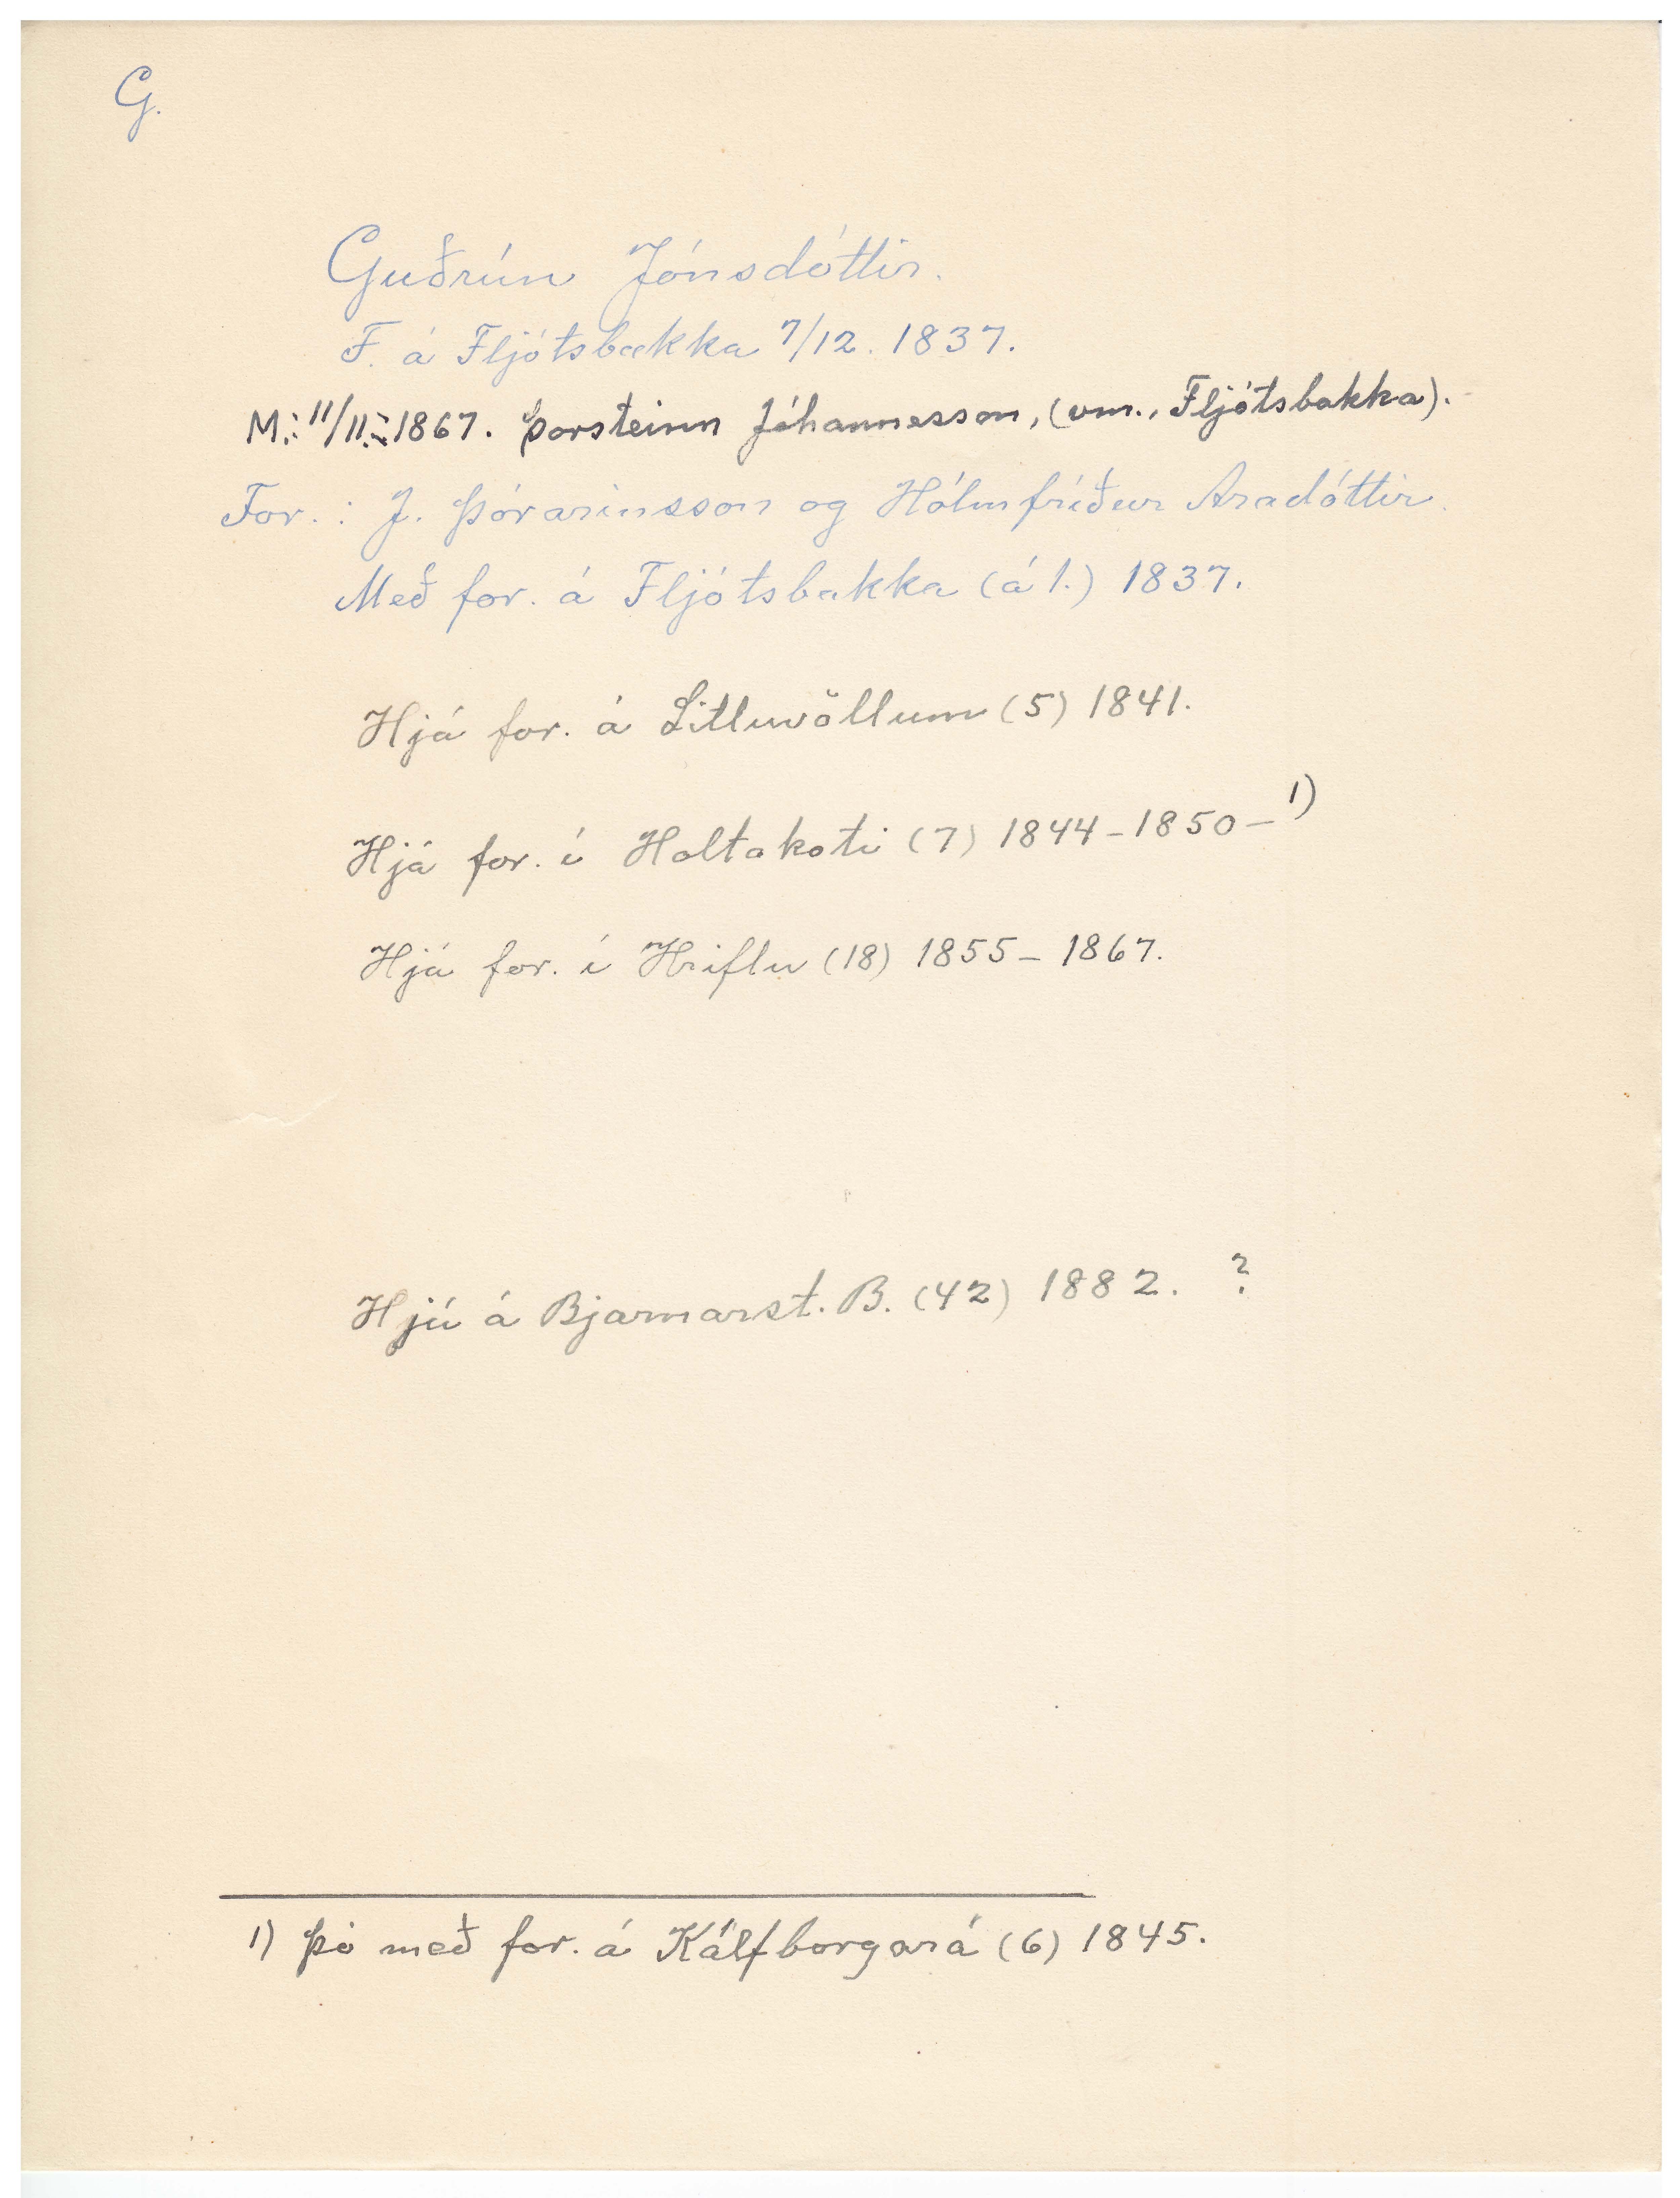 G.
Guðrún Jónsdóttir.
F. á Fljótsbakka 7/12. 1837.
M.: 11/11. 1867. Þorsteinn Jóhannesson, (vm., Fljótsbakka).
For. : J. Þórarinsson og Hólmfríður Aradóttir.
Með for. á Fljótsbakka (á 1.) 1837.
Hjá for. á Litluvöllum (5) 1841.
Hjá for. í Holtakoti (7) 1844 - 1850 - 1)
Hjá for. í Hriflu (18) 1855 - 1867.
Hjú á Bjarnarst. B. (42) 1882. ?
1) Þó með for. á Kálfborgará (6) 1845.